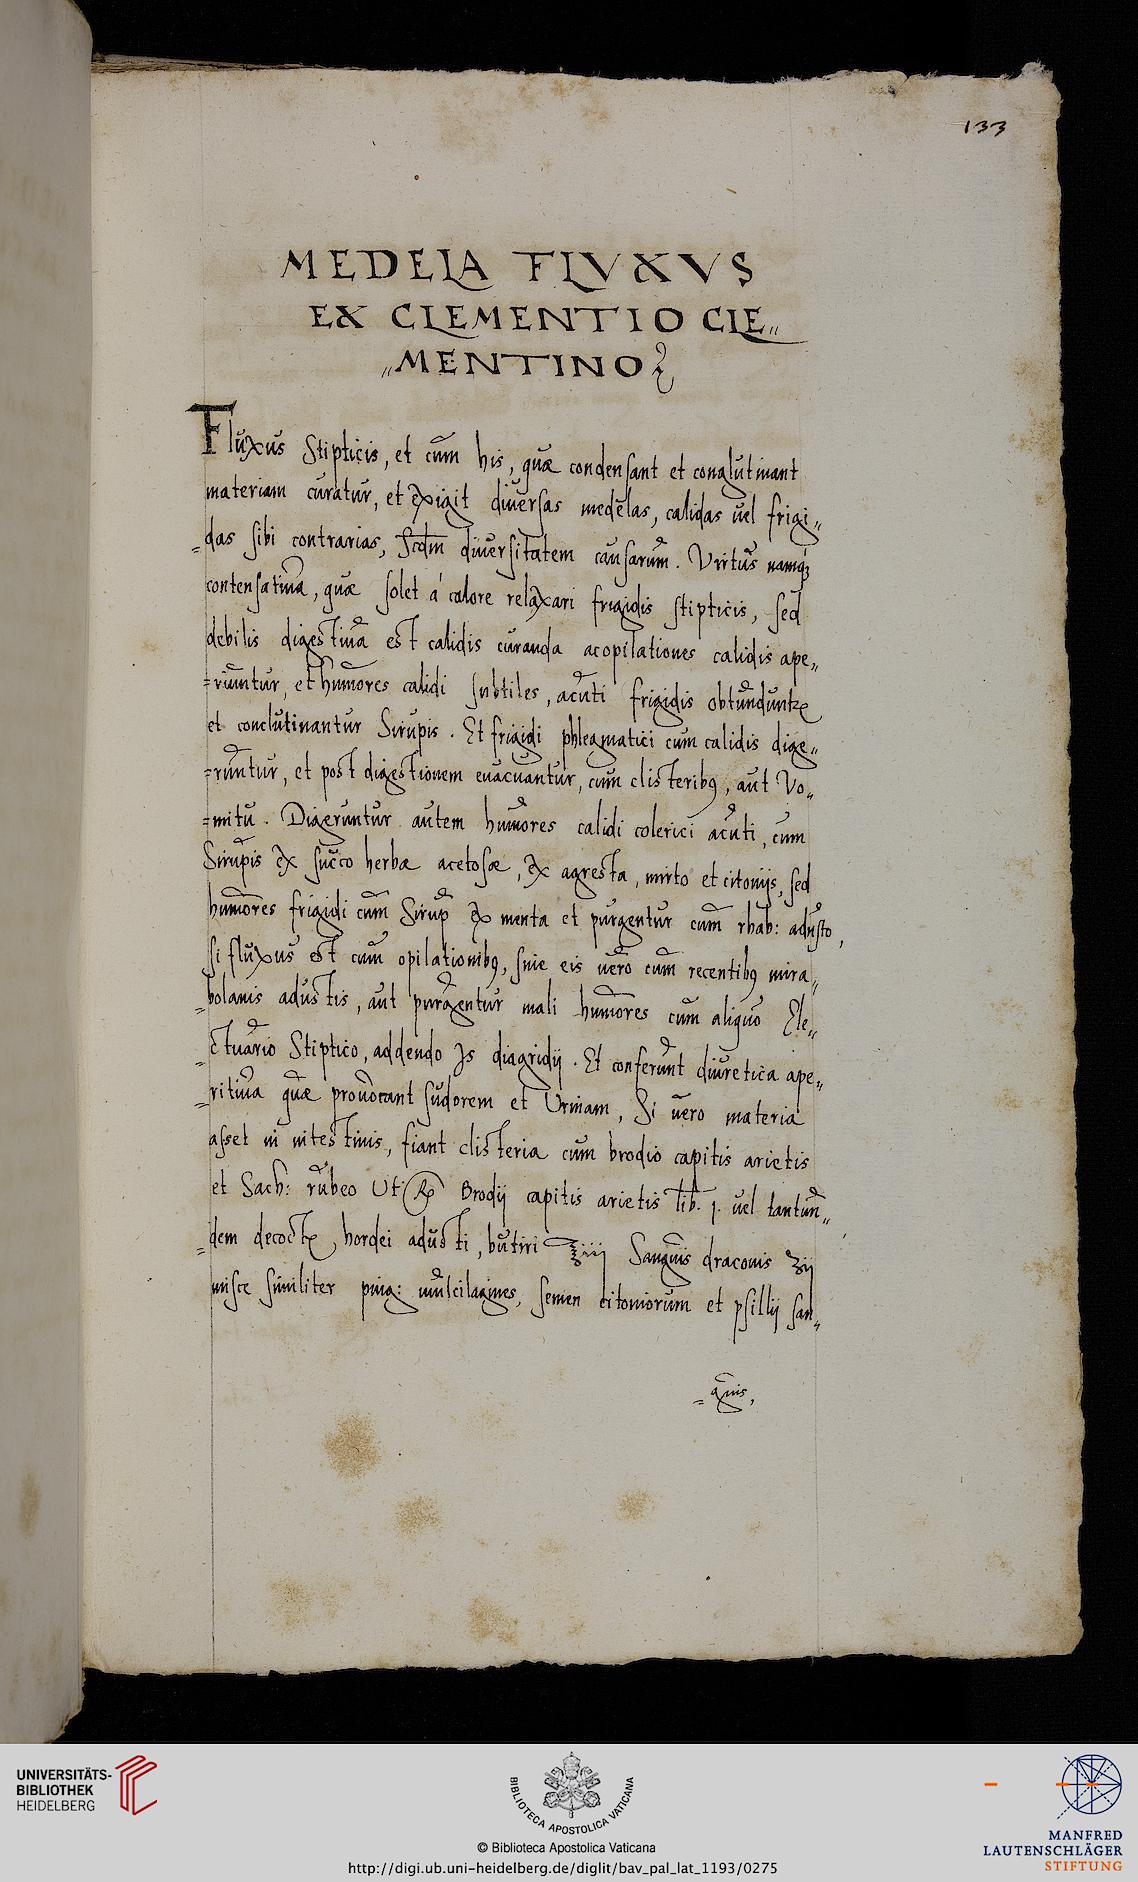 133
MEDELA FLVXVS
EX CLEMENTIO CLE„
„MENTINO
Fluxus Stipticis, et cum his, quæ condensant et conglutinant
materiam curatur, et exigit diuersas medelas, calidas uel frigi„
=das sibi contrarias, Scdm diuersitatem causarum. Virtus namq;
contensatiua, quæ solet á calore relaxari frigidis stipticis, sed
debilis digestiua est calidis curanda acopilationes calidis ape„
=riuntur, et humores calidi subtiles, acuti frigidis obtundunt
et conclutinantur Sirupis. Et frigidi phlegmatici cum calidis dige„
=runtur, et post digestionem euacuantur, cum clisterib9, aut Vo„
=mitu. Digeruntur autem humores calidi colerici acuti, cum
Sirupis ex succo herbæ acetosæ, ex agresta, mirto et citonijs, sed
humores frigidi cum Sirup ex menta et purgentur cum rhab: adusto,
si fluxus est cum opilationib9, sine eis uero cum recentib9 mira„
=bolanis adustis, aut purgentur mali humores cum aliquo Ele„
=ctuario Stiptico, addendo diagridij. Et conferunt diuretica ape„
=ritiua quæ prouocant sudorem et Urinam, Si uero materia
asset in intestinis, fiant clisteria cum brodio capitis arietis
et Sach: rubeo Ut ℞ Brodij capitis arietis lib. j. uel tantun„
=dem decoct hordei adusti, butiri ℥iiij Sanguis draconis ʒij
misce similiter ping: mulcilagines, semen citoniorum et psillij san„
=guis,
UNIVERSITÄTS-
BIBLIOTHEK
HEIDELBERG
BIBLIOTECA APOSTOLICA VATICANA
© Biblioteca Apostolica Vaticana
http://digi.ub.uni-heidelberg.de/diglit/bav_pal_lat_1193/0275
MANFRED
LAUTENSCHLÄGER
STIFTUNG